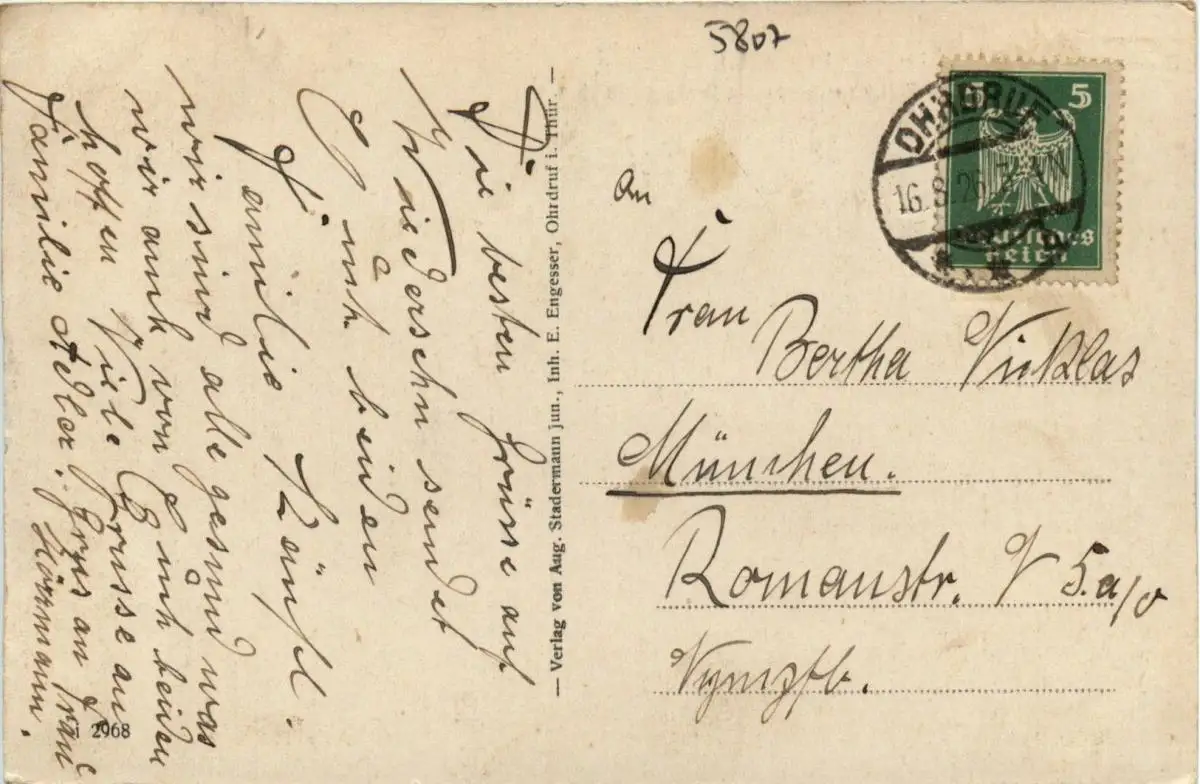 5807
5 5
Deutsches
Reich
OHRDRUF
16.8.26.
Die besten Grüsse auf
Wiedersehn sendet
Euch beiden
Familie
wir sind alle gesund was
wir auch von Euch beiden
hoffen Viele Grüsse an
Familie Adler. Gruss an Frau
Hörmann.
— Verlag von Aug. Stadermann jun., Inh. E. Engesser, Ohrdruf i. Thür. —
An
Frau
Bertha Nicklas
München.
Romanstr.
2968